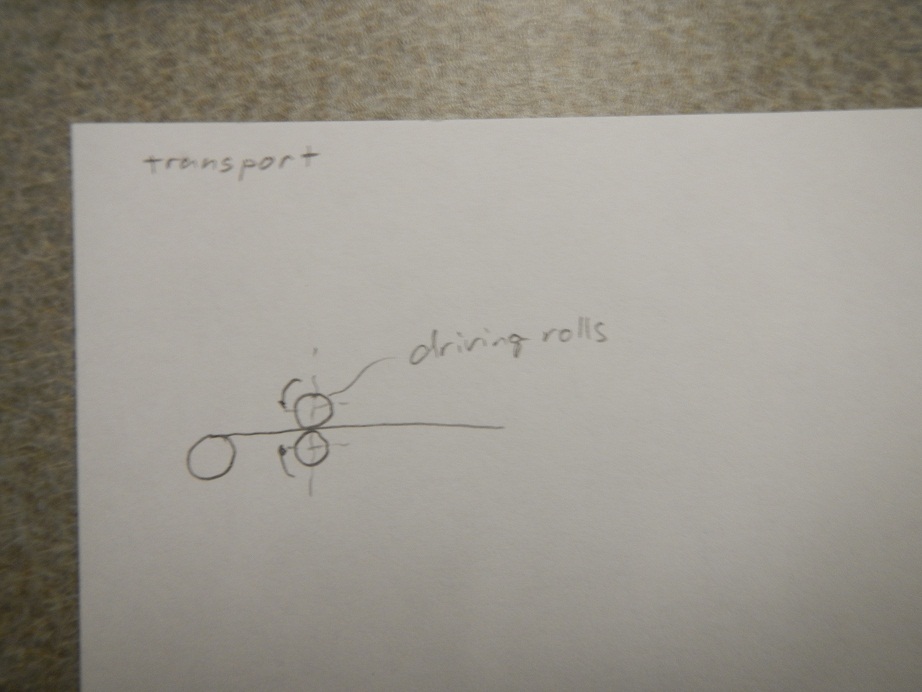 transport
driving rolls